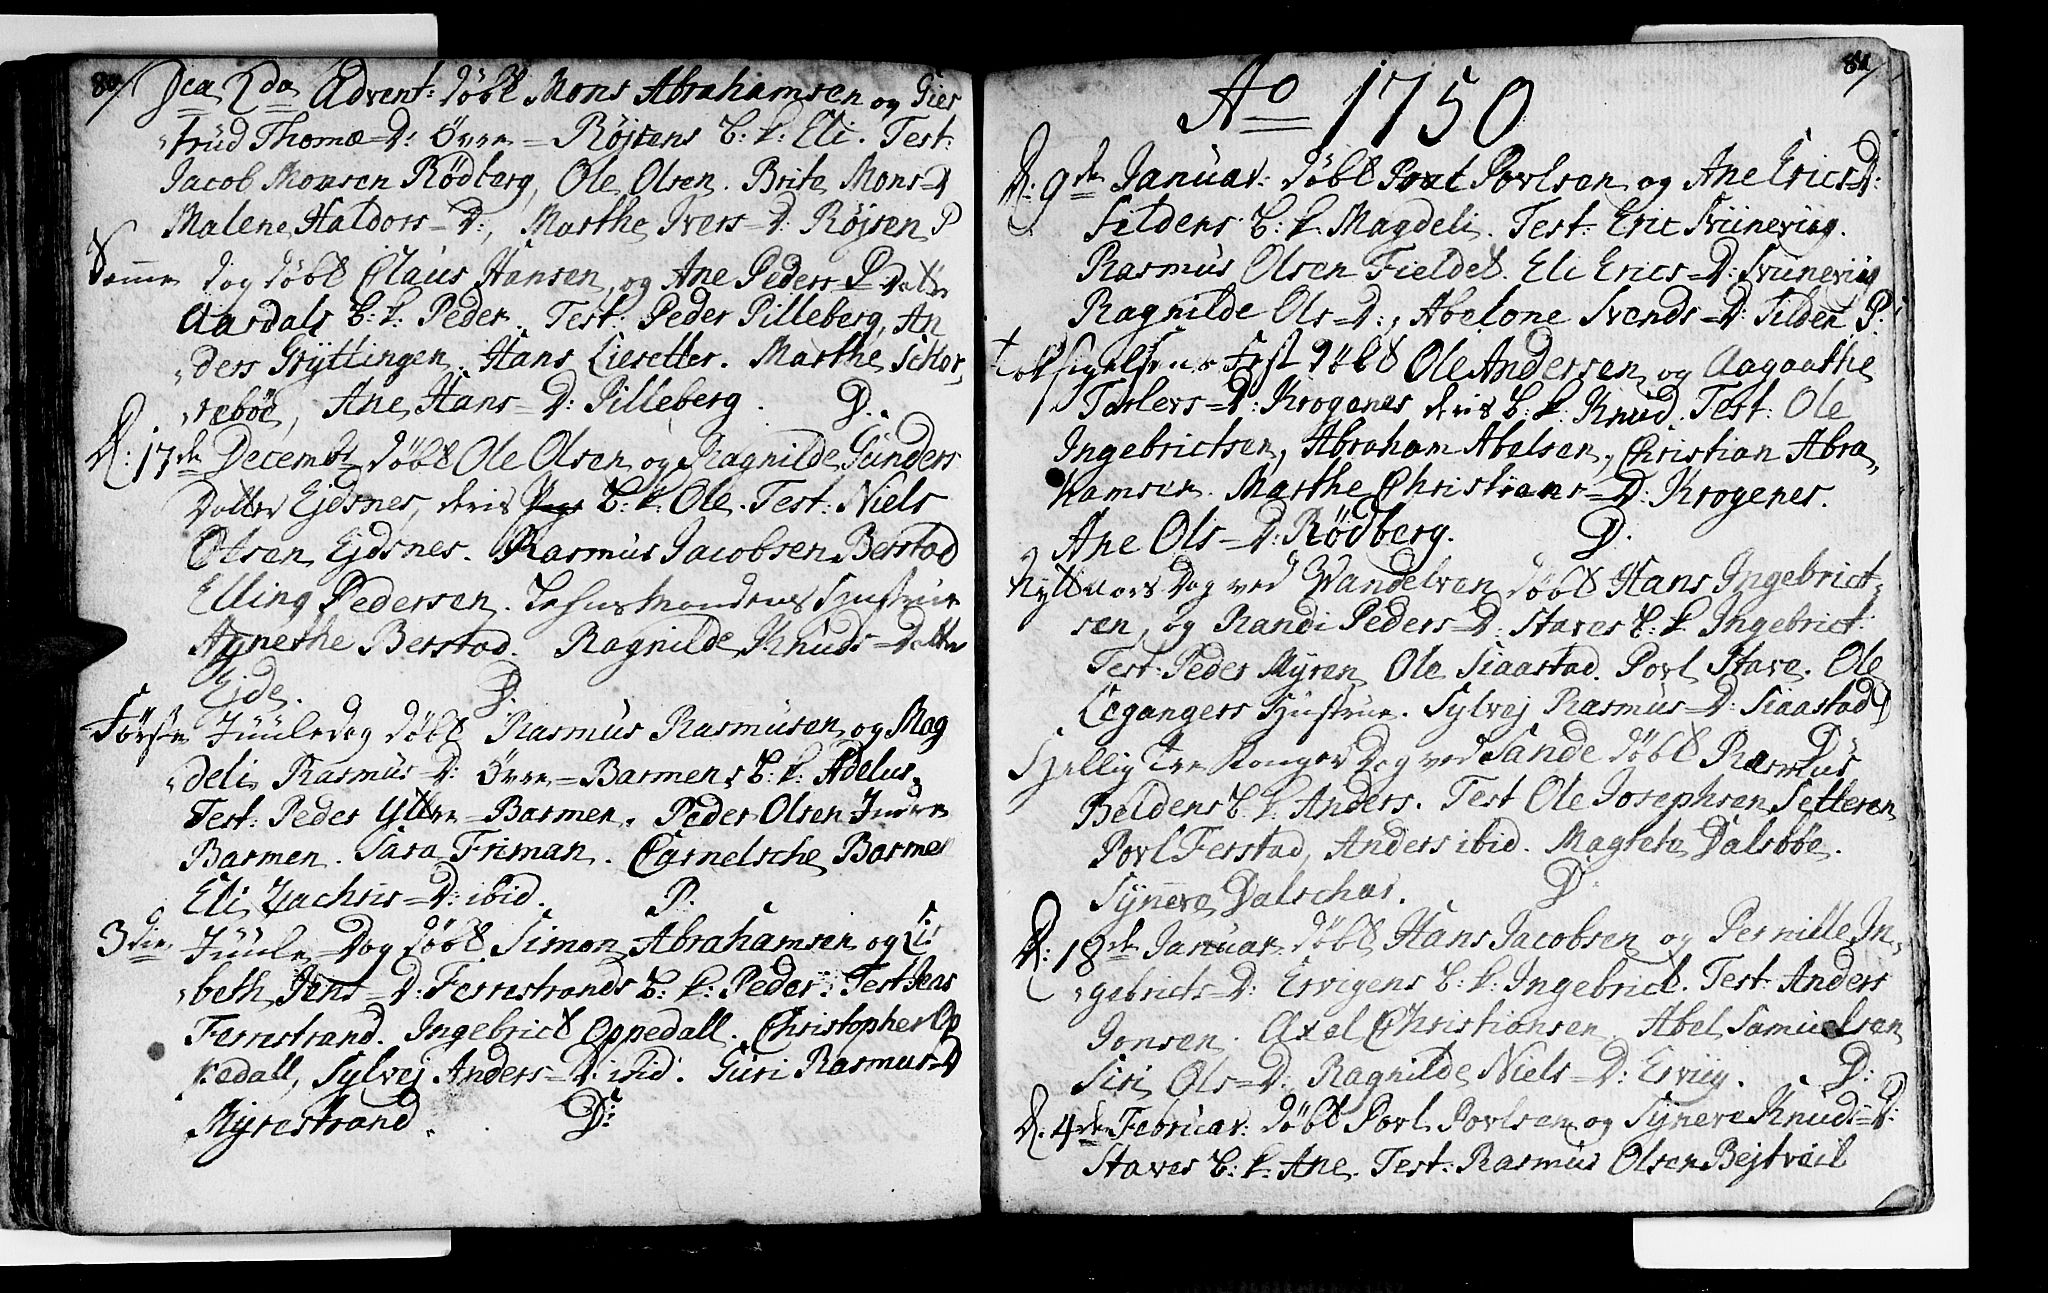 80/
Dca 2da Advent: døbt Mons Abrahamsen og Gier
trud Thomæ=D: Øvre=Røjsens B: k: Eli. Test:
Jacob Monsen Rødberg, Ole Olsen. Brite Mons=D
Malene Haldors=D:, Marthe Ivers=D: Røjsen P
Samme dag døbt Claus Hansen, og Ane Peders Datter
Aardals B: k: Peder. Test: Peder Pilleberg, An
ders Gryttingen. Hans Liesetter. Marthe Schor,
rebøe, Ane Hans=D: Pilleberg. D.
D: 17de Decembr døbt Ole Olsen og Ragnilde Gunders
Datter Ejdsnes, deris B: k: Ole. Test: Niels
Olsen Ejdsnes. Rasmus Jacobsen Berstad
Elling Pedersen. Lehnsmandens Hustrue
Agnethe Berstad. Ragnilde Knuds=Datter
Ejde. D.
Første Juuledag døbt Rasmus Rasmusen og Mag
deli Rasmus=D: Øvre=Barmens B: k: Adelus.
Test: Peder Yttre=Barmen. Peder Olsen Indre
Barmen. Sara Friman. Carnelsche Barmen
Eli Zachris=D: ibid. P.
3die Juule=Dag døbt Simon Abrahamsen og Lis
beth Jens=D: Ferrestrands B: k: Peder. Test: Jens
Ferrestrand. Ingebrict Oppedall. Christopher Op
pedall, Sylvej Anders=D: ibid. Guri Rasmus=D
Myrestrand. D:
81/
Ao 1750
D: 9de Januar: døbt Povel Povlsen og Ane Erics=D:
Sildens B: k: Magdeli. Test: Eric Sviineviig.
Rasmus Olsen Fieldet. Eli Erics=D: Sviineviig
Ragnilde Ols=D:, Abelone Svends=D: Silden P:
Taksigelsens Fest døbt Ole Andersen og Aagaathe
Torlers=D: Krogenes deris B: k: Knud. Test: Ole
Ingebrictsen, Abraham Abelsen, Christian Abra,
hamsen. Marthe Christians=D: Krogenes.
Ane Ols=D: Rødberg. D.
Nyttaars Dag ved Vandelven døbt Hans Ingebrict
sen, og Randi Peders=D: Staves B: k: Ingebrict
Test: Peder Myren Ole Siaastad. Povl Stave. Ole
Legangers Hustrue. Sylvej Rasmus=D: Siaastad D
Hellig Tre Konger Dag ved Sande døbt Rasmus D
Beldens B: k: Anders. Test Ole Josephsen Setteren
Povl Ferstad, Anders ibid. Magrete Dalsbøe.
Synneva Dalschar. D
D: 18de Januar døbt Hans Jacobsen og Pernille In,
gebricts=D: Ervigens B: k: Ingebrict. Test: Anders
Jonsen. Axel Christiansen. Abel Samuelsen
Siri Ols=D: Ragnilde Niels=D: Erviig. D:
D. 4de Februar: døbt Povl Povlsen og Syneve Knuds=D:
Staves B: k: Ane. Test: Rasmus Olsen Bejtvail